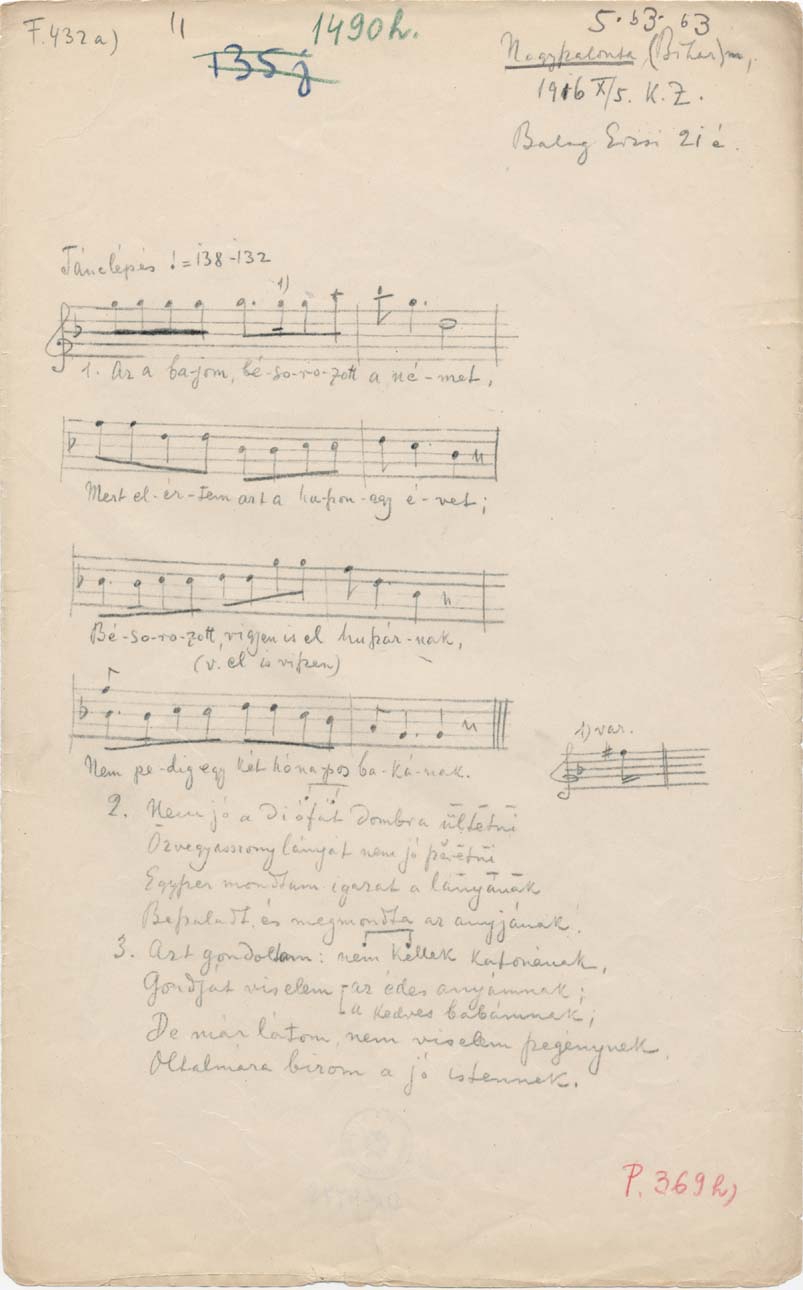 F.432a) 1/1 1490h. 5. b3. b3
135j Nagyszalonta, (Bihar)m.,
1916 X/5. K.Z.
Balog Erzsi 21 é.
Tánclépés ♩=138-132
1)
1. Az a ba-jom, bé-so-ro-zott a né-met,
Mert el-ér-tem azt a huszon-egy é-vet;
Bé-so-ro-zott, vigyen is el huszár-nak,
(v. el is viszen)
Nem pe-dig egy két hóna-pos ba-ká-nak.
1) var.
2. Nem jó a diófát dombra ültetni
Özvegyasszony lányát nem jó szeretni
Egyszer mondtam igazat a lányának
Beszaladt, és megmondta az anyjának.
3. Azt gondoltam: nem kellek katonának,
Gondját viselem az édes anyámnak;
a kedves babámnak;
De már látom, nem viselem szegénynek,
Oltalmára bízom a jó istennek.
P. 369h)